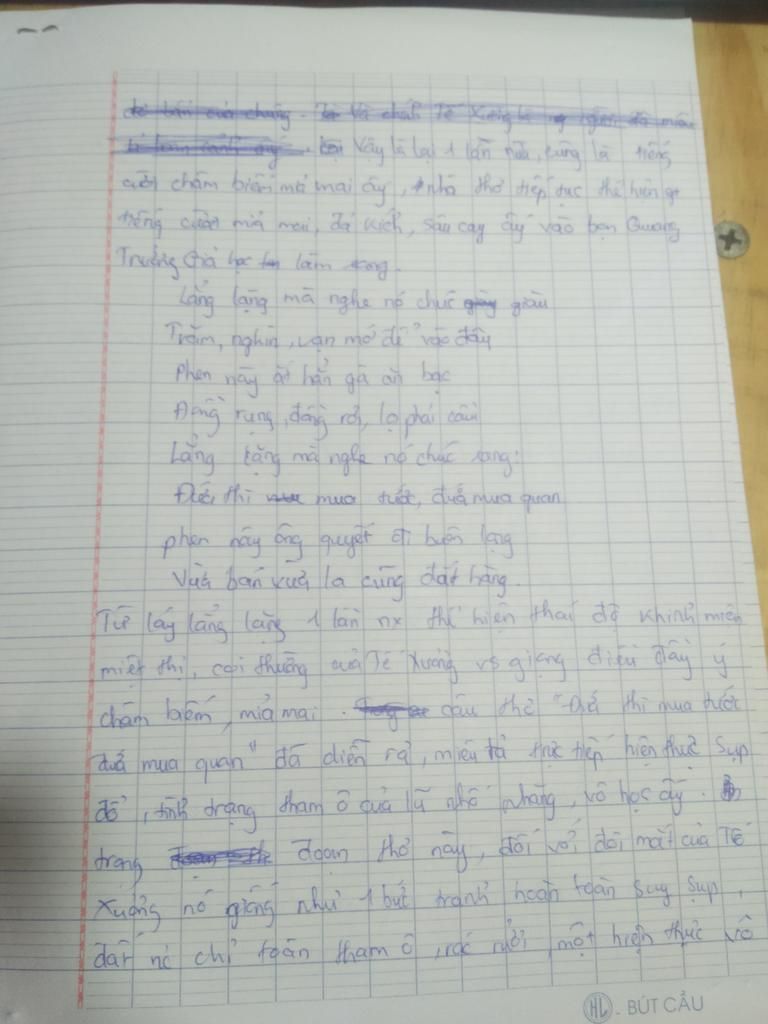 Vậy là lại 1 lần nữa, cũng là tiếng
cười châm biếm mỉa mai ấy, nhà thơ tiếp tục thể hiện
tiếng cười mỉa mai, đả kích, sâu cay ấy vào bọn Quang
Trưởng Giả học làm sang.
Lẳng lặng mà nghe nó chúc giàu
Trăm, nghìn, vạn mớ để vào đâu
Phen này ắt hẳn gà ăn bạc
Đồng rụng, đồng rơi, lọ phải cầu
Lẳng lặng mà nghe nó chúc sang:
Đứa thì mua tước, đứa mua quan
phen này ông quyết đi buôn lọng
Vừa bán vừa la cũng đắt hàng.
Từ láy lẳng lặng 1 lần nx thể hiện thái độ khinh miệt
miệt thị, coi thường của Tế Xương vs giọng điệu đầy ý
châm biếm, mỉa mai. câu thơ "Đứa thì mua tước
đứa mua quan" đã diễn ra, miêu tả trực tiếp hiện thực sụp
đổ, tình trạng tham ô của lũ nhố nhăng, vô học ấy.
trong đoạn thơ này, đối với đôi mắt của Tế
Xương nó giống như 1 bức tranh hoàn toàn suy sụp,
chỉ toàn tham ô, một hiện thực vô
HL. BÚT CẨU